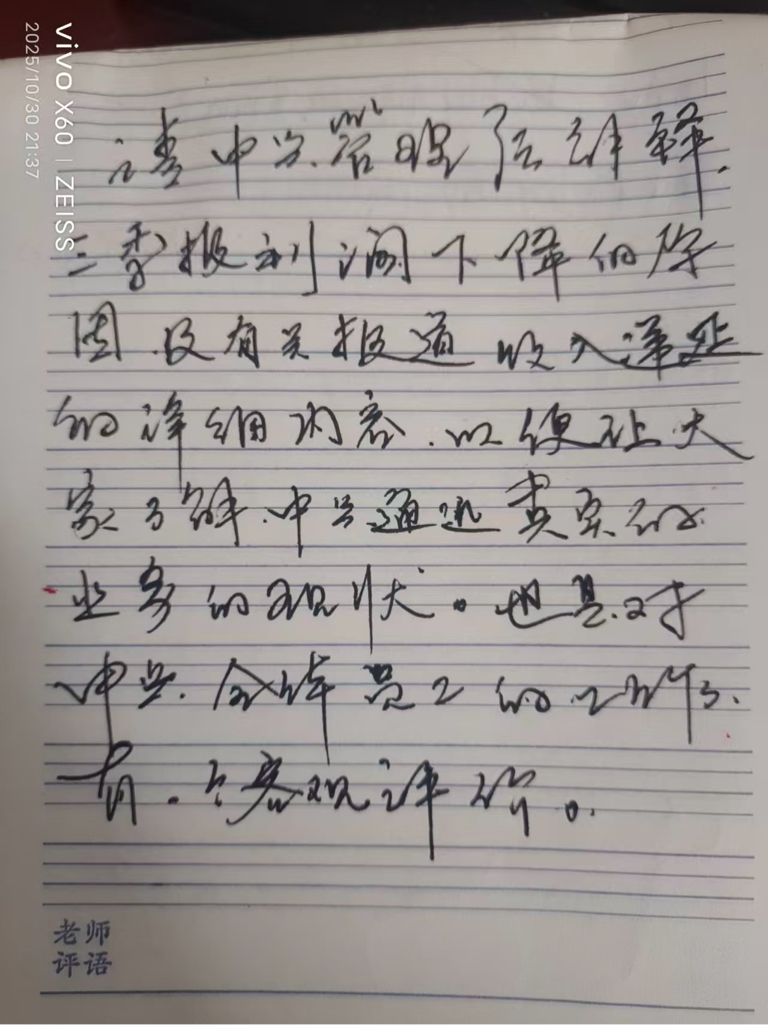 请中兴管理层解释.
三季报利润下降的原
因.及有关报道收入递延
的详细内容.以便让大
家了解.中兴通讯真实的
业务的现状。也是对
中兴.全体员工的工作.
有.个客观评价。
老师
评语
vivo X60 | ZEISS
2025/10/30 21:37